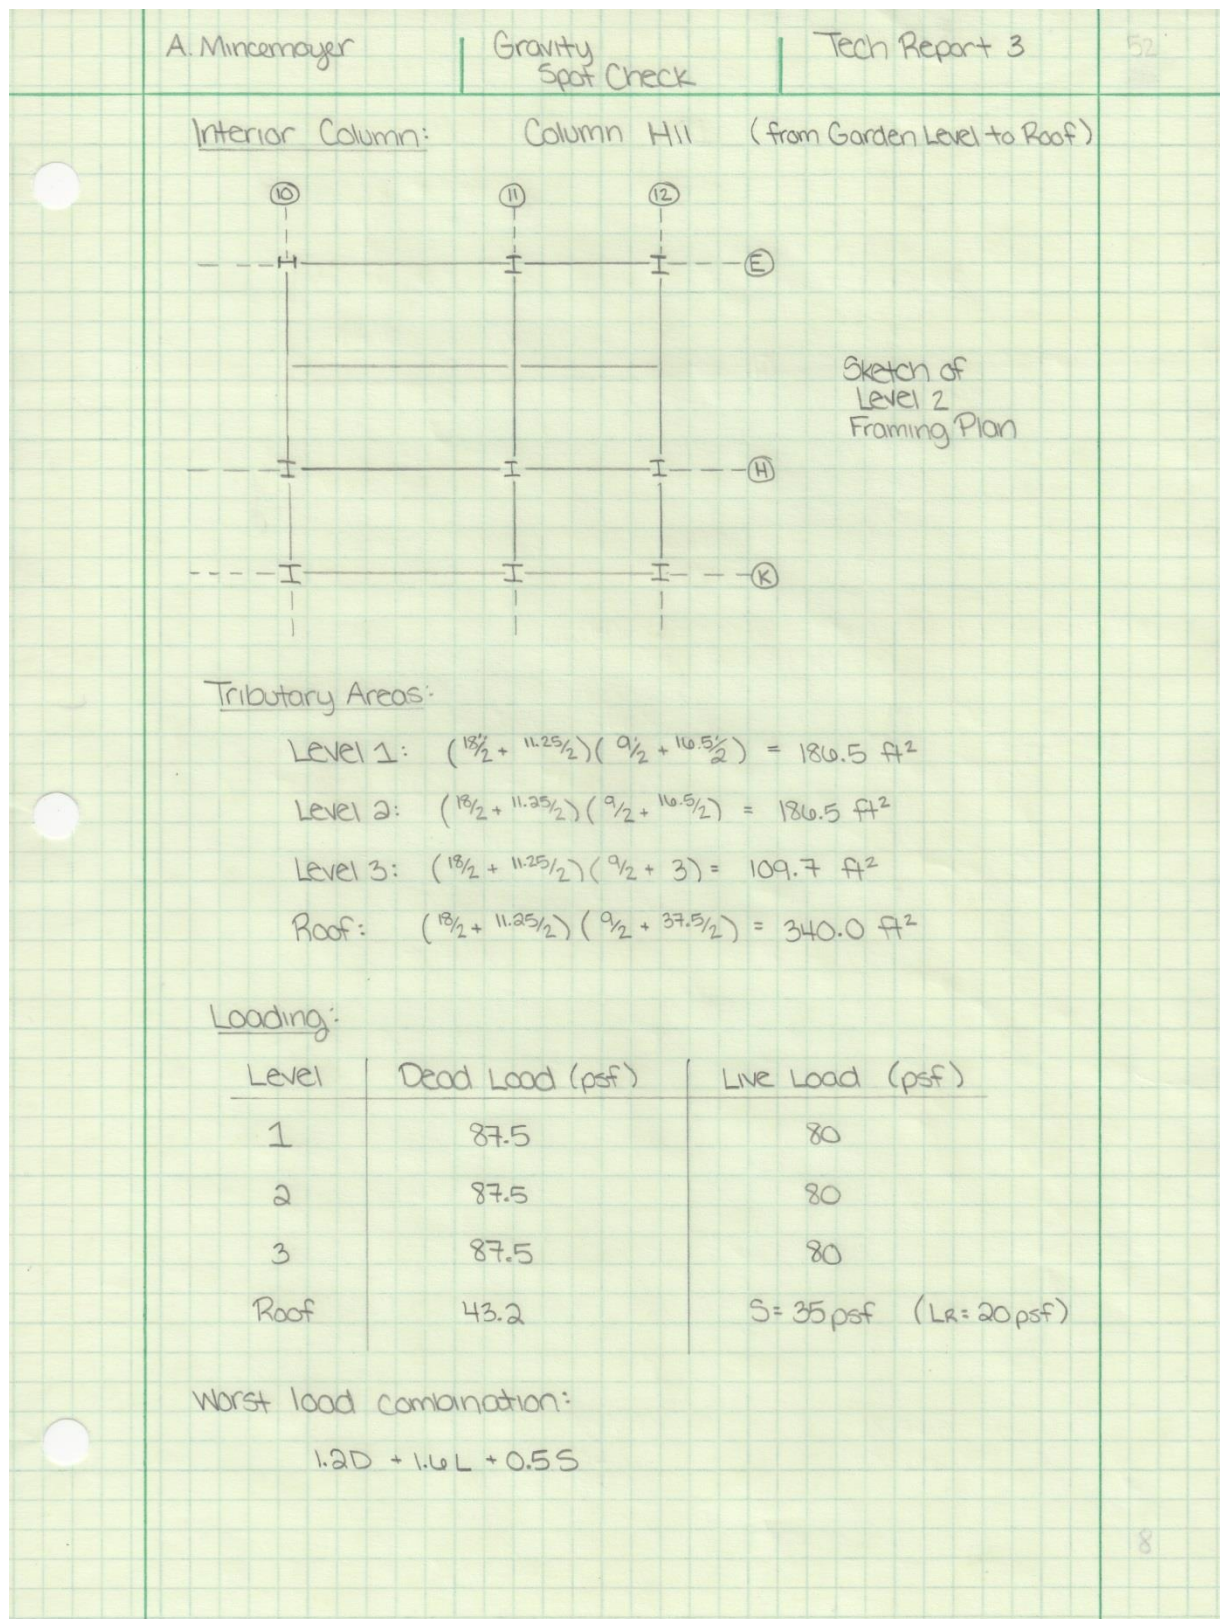 A. Mincemoyer
Gravity
Spot Check
Tech Report 3
52
Interior Column: Column H11 (from Garden Level to Roof)
10 11 12
E
Sketch of
Level 2
Framing Plan
H
K
Tributary Areas:
Level 1: (18'/2 + 11.25/2)(9'/2 + 16.5'/2) = 186.5 ft²
Level 2: (18/2 + 11.25/2)(9/2 + 16.5/2) = 186.5 ft²
Level 3: (18/2 + 11.25/2)(9/2 + 3) = 109.7 ft²
Roof: (18/2 + 11.25/2)(9/2 + 37.5/2) = 340.0 ft²
Loading:
Level Dead Load (psf) Live Load (psf)
1 87.5 80
2 87.5 80
3 87.5 80
Roof 43.2 S = 35 psf (LR = 20 psf)
Worst load combination:
1.2D + 1.6L + 0.5S
8